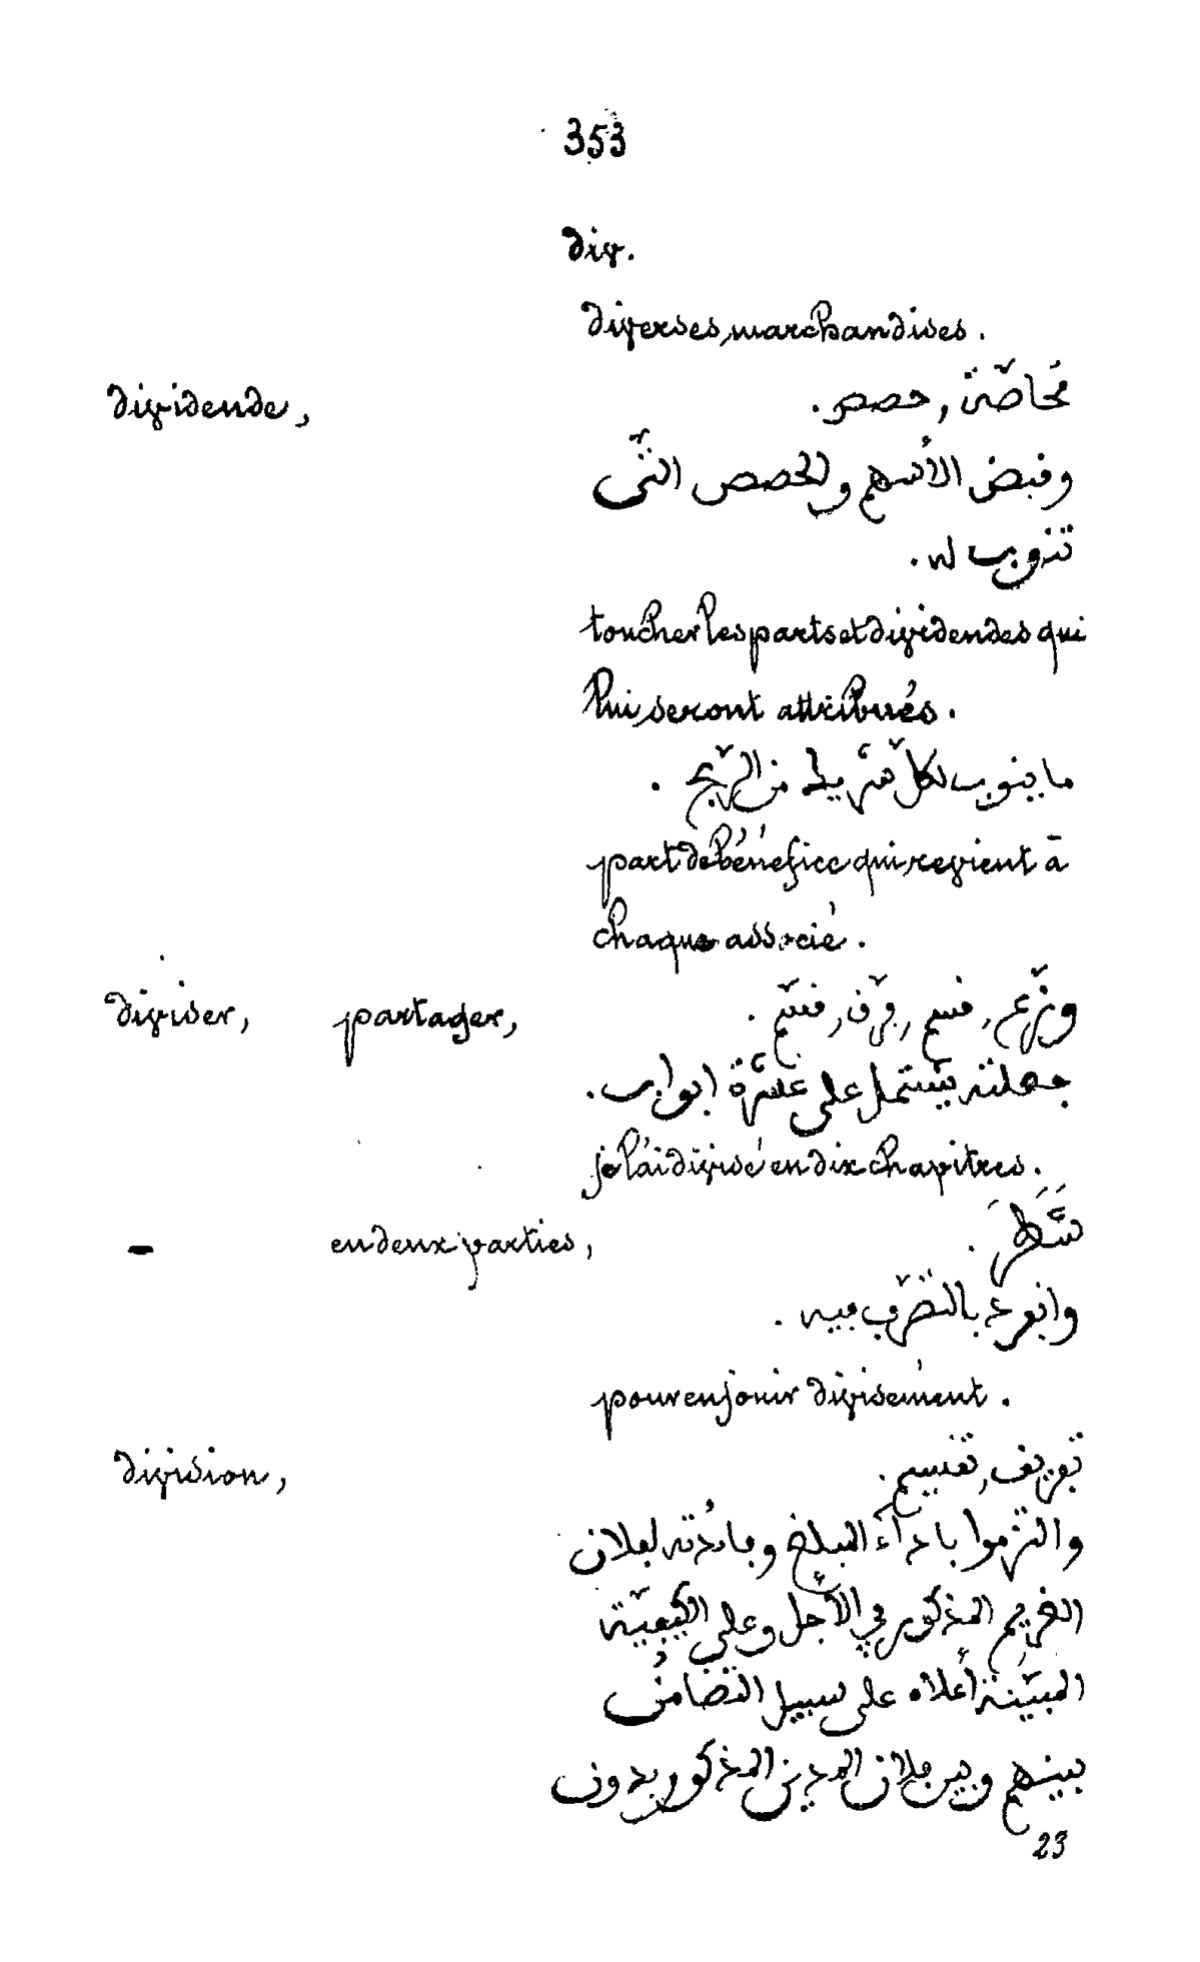 353
div.
diverses marchandises.
dividende, مُحَاصّة, حصص.
وقبض الأسهم والحصص التّى
تنوب له.
toucher les parts et dividendes qui
lui seront attribués.
ما ينوب لكلّ شريك من الرّبح.
part de bénéfice qui revient à
chaque associé.
diviser, partager, وزّع, قسم, فرّق, قسّم.
جعلته يشتمل على عشرة ابواب.
je l'ai divisé en dix chapitres.
— en deux parties, شَطَرَ.
وانفرد بالتّصرّف فيه.
pour en jouir divisément.
division, تفريق, تقسيم.
والتزموا باداء المبلغ وفائدته لفلان
الغريم المذكور في الأجل وعلى الكيفيّة
المبيّنة أعلاه على سبيل التضامُن
بينهم وبين فلان المدين المذكور بدون
23